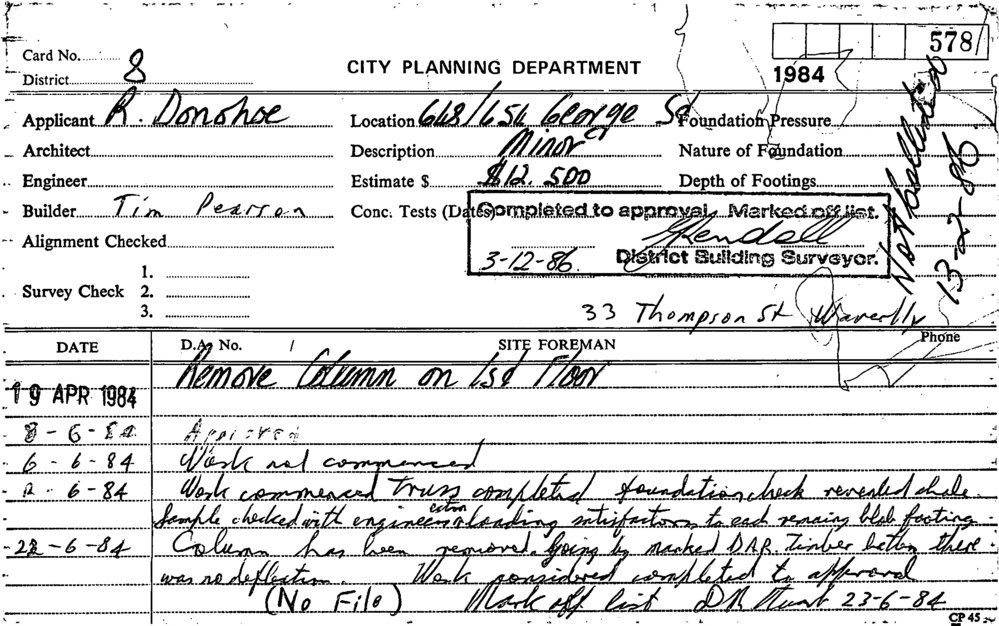 Card No.
578/
District 8
CITY PLANNING DEPARTMENT
1984
Applicant R. Donohoe
Location 648/654 George St
Foundation Pressure
Architect
Description Minor
Nature of Foundation
Engineer
Estimate $ $12.500
Depth of Footings
Builder Tim Pearson
Conc. Tests (Dates)
Completed to approval. Marked off list.
Alignment Checked
3-12-86
District Building Surveyor.
13-22-86
1.
Survey Check 2.
3.
33 Thompson St Waverlly
Phone
DATE
D.A. No. /
SITE FOREMAN
Remove Column on 1st Floor
19 APR 1984
Approved
6-6-84 Work not commenced
6-84 Work commenced truss completed foundation check revealed shale.
Sample checked with engineer loading satisfactory to each footing
22-6-84 Column has been removed. Going by marked D.A.R. Timber batten there
was no deflection. Work considered completed to approval
(No File) Mark off list 23-6-84
CP 45